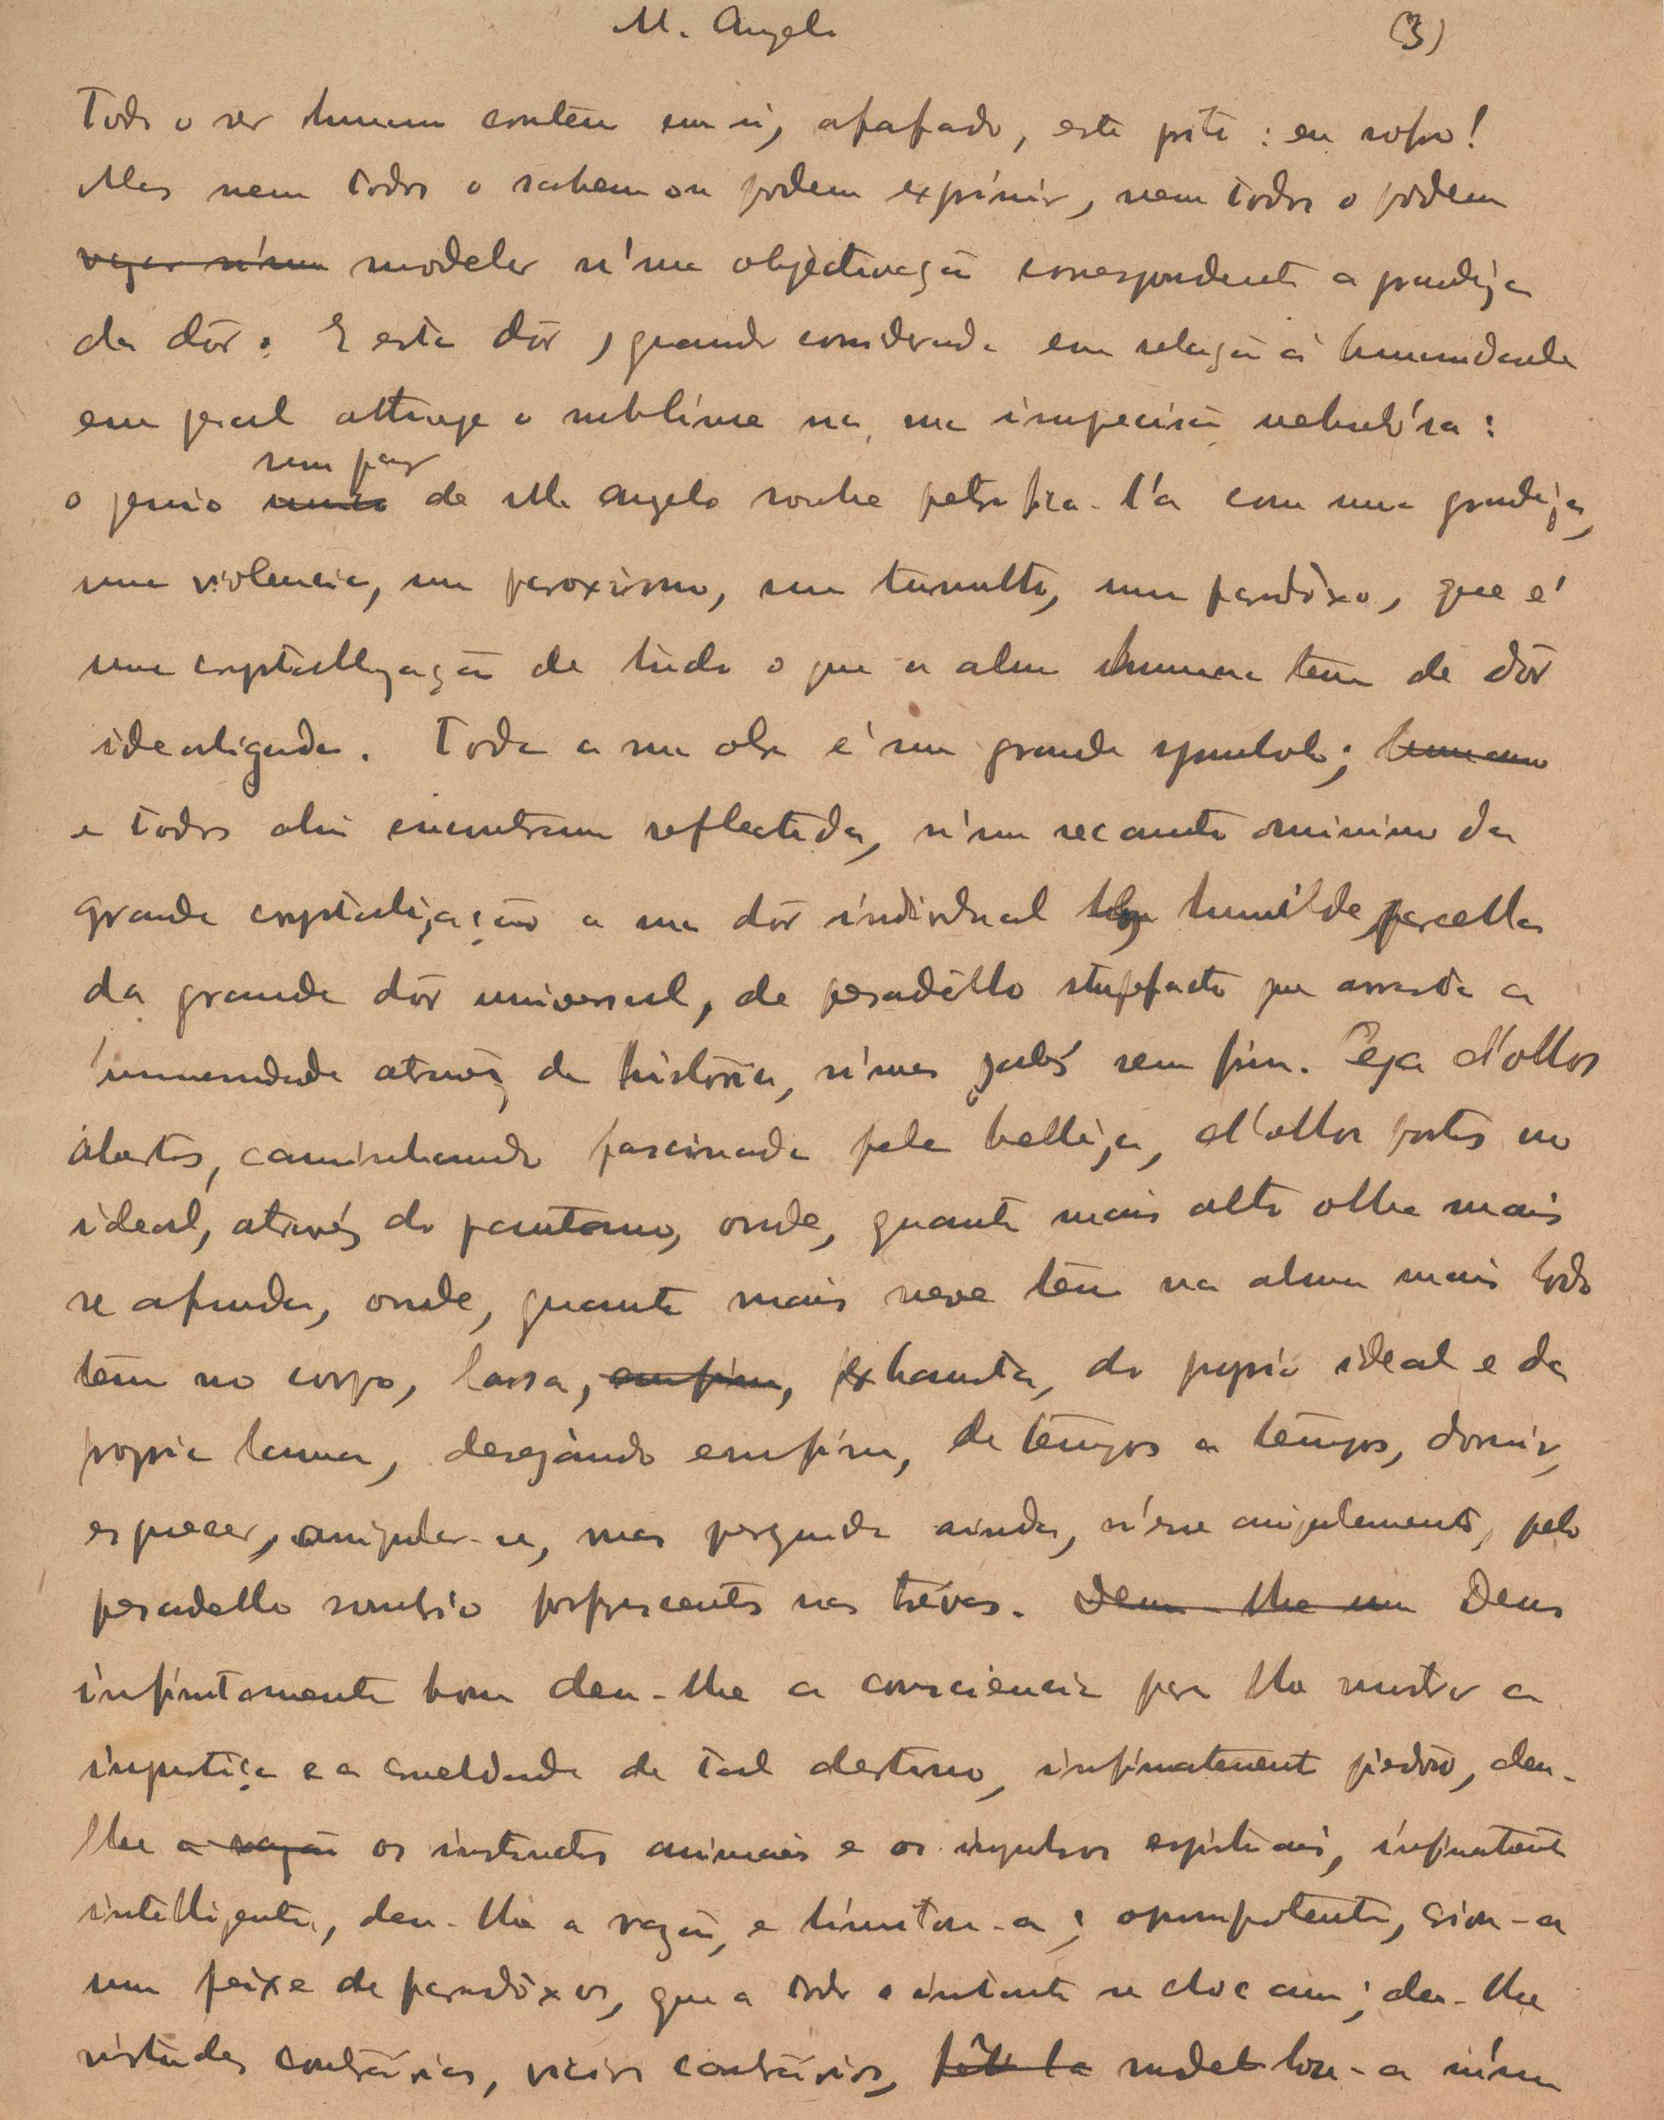 M. Angelo (3)
Todo o ser humano contêm em si, abafado, este grito: eu soffro!
Mas nem todos o sabem ou podem exprimir, nem todos o pódem
modelar n'uma objectivação correspondente a grandeza
da dôr. E esta dôr, quando considerada em relação á humanidade
em geral attinge o sublime na sua imprecisão nebulósa:
sem par
o genio unico de M. Angelo soube petrifica-l'a com uma grandeza,
uma violencia, um paroxismo, um tumulto, um paradôxo, que é
uma crystallização de tudo o que a alma humana tem de dôr
idealizada. Toda a sua obra é um grande symbolo; humano
e todos ahi encontram reflectida, n'um recanto minimo da
grande crystalização a sua dôr individual humilde parcella
da grande dôr universal, de pesadêllo stupefacto que arrasta a
humanidade atravéz da história, n'uma galé sem fim. Cega d'olhos
abertos, caminhando fascinada pela belleza, d'olhos postos no
ideal, atravéz do pantano, onde, quanto mais alto olha mais
se afunda, onde, quanto mais neve têm na alma mais lodo
têm no corpo, lassa, emfim, exhausta, do proprio ideal e da
propria lama, desejando emfim, de têmpos a têmpos, dormir,
esquecer, aniquilar-se, mas perseguida ainda, n'esse aniquilamento, pelo
pesadello sombrio phosphorescente nas trévas. Deu-lhe um Deus
infinitamente bom deu-lhe a consciencia para lhe mostrar a
injustiça e a crueldade de tal destino, infinitamente piedoso, deu-
lhe a razão os instinctos animaes e os impulsos espirituaes, infinitamente
intelligente, deu-lhe a razão, e limitou-a; omnipotente, criou-a
um feixe de paradôxos, que a todo o instante se chocam; deu-lhe
virtudes contrárias, vicios contrários, modellou-a n'um